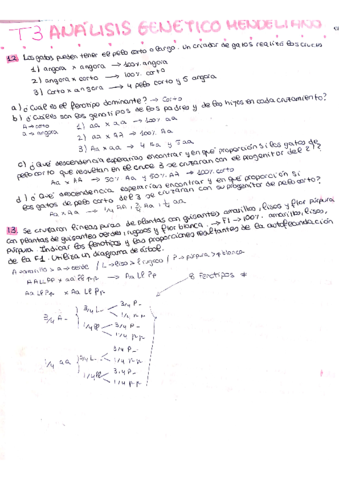 T3 ANÁLISIS GENÉTICO MENDELIANO
1.2. Los gatos pueden tener el pelo corto o largo. Un criador de gatos realizó los cruces
1) angora x angora → 100% angora
2) angora x corto → 100% corto
3) corto x angora → 4 pelo corto y 5 angora
a) ¿Cuál es el fenotipo dominante? → Corto
b) ¿Cuáles son los genotipos de los padres y de los hijos en cada cruzamiento?
A → corto 1) aa x aa → 100% aa
a → angora 2) aa x AA → 100% Aa
3) Aa x aa → 4 Aa y 5 aa
c) ¿Qué descendencia esperarías encontrar y en qué proporción si los gatos de
pelo corto que resultan en el cruce 3 se cruzaran con el progenitor del 2?
Aa x AA → 50% AA y 50% Aa → 100% corto
d) ¿Qué descendencia esperarías encontrar y en qué proporción si
los gatos de pelo corto del 3 se cruzaran con su progenitor de pelo corto?
Aa x Aa → 1/4 AA, 1/2 Aa, 1/4 aa
1.3. Se cruzaron líneas puras de plantas con guisantes amarillos, lisos y flor púrpura
con plantas de guisantes verdes, rugosos y flor blanca. → F1 → 100% amarillos, lisos,
púrpura. Indicar los fenotipos y las proporciones resultantes de la autofecundación
de la F1. Utiliza un diagrama de árbol.
A → amarillo > a → verde / L → liso > l rugoso / P → púrpura > p blanca
AALLPP x aa ll pp → Aa Ll Pp
Aa Ll Pp x Aa Ll Pp
8 Fenotipos *
3/4 A-
3/4 L-
3/4 P-
1/4 pp
1/4 ll
3/4 P-
1/4 pp
1/4 aa
3/4 L-
3/4 P-
1/4 pp
1/4 ll
3/4 P-
1/4 pp